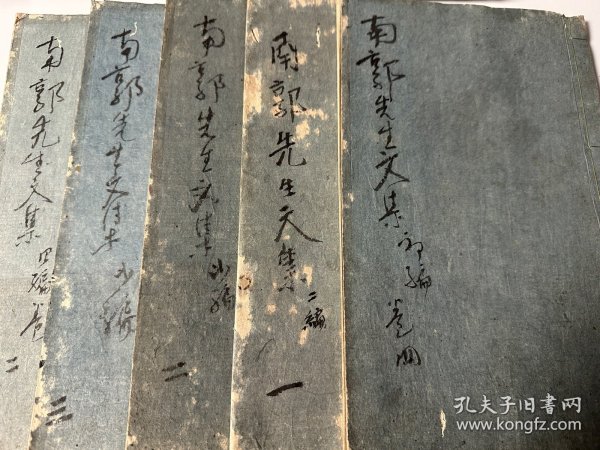 南郭先生文集 初編 卷四
南郭先生文集 二編 一
南郭先生文集 二
南郭先生文集 三
南郭先生文集 四編 卷二
孔夫子旧书网
www.kongfz.com